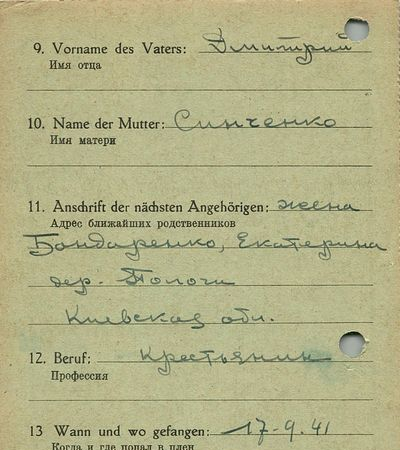 9. Vorname des Vaters: Дмитрий
Имя отца
10. Name der Mutter: Синченко
Имя матери
11. Anschrift der nächsten Angehörigen: жена
Адрес ближайших родственников
Бондаренко, Екатерина
дер. Пологи
Киевская обл.
12. Beruf: Крестьянин
Профессия
13 Wann und wo gefangen: 17-9.41
Когда и где попал в плен